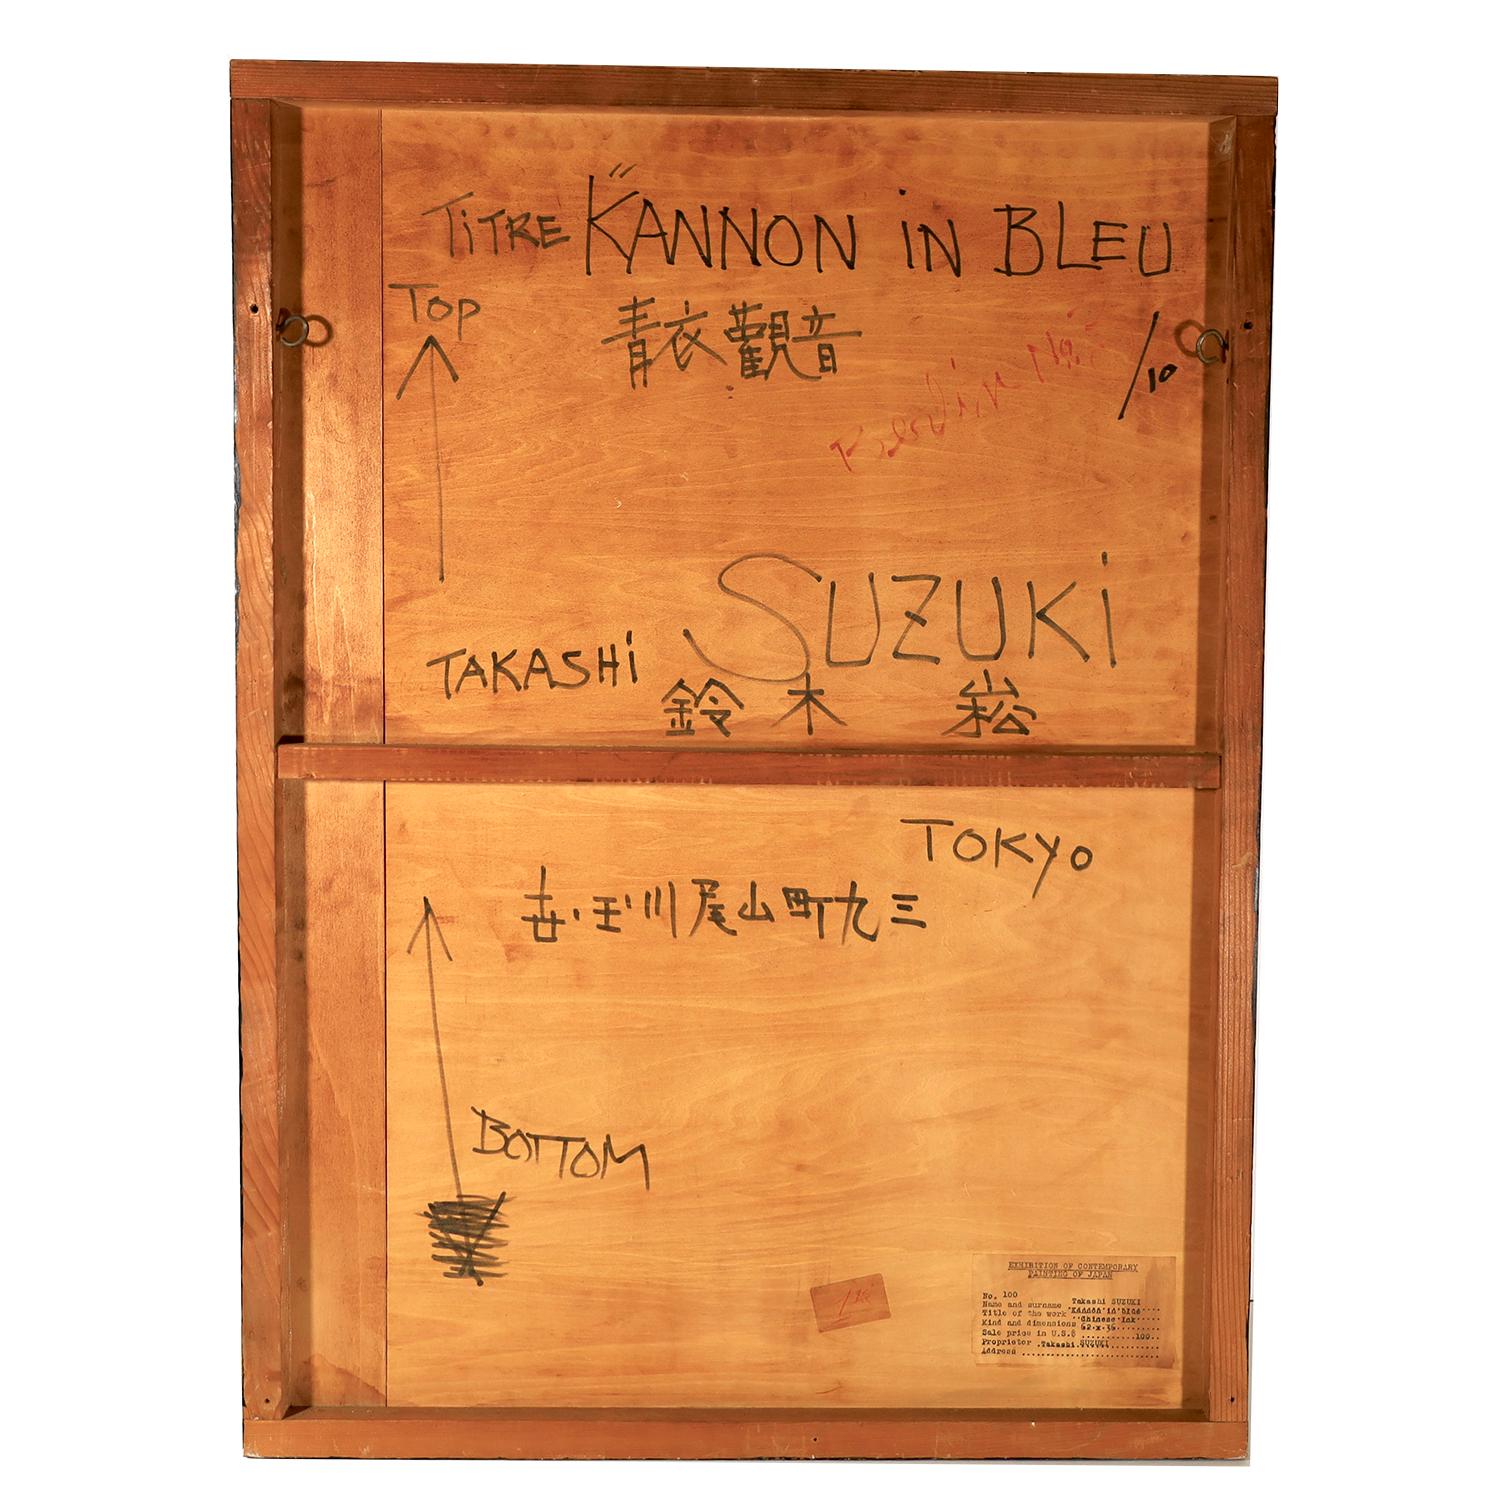 TiTRE "KANNON iN BLEU
Top
青衣觀音
/10
SUZUKi
TAKASHi
鈴木 崧
TOKYO
世・玉川尾山町九三
BOTTOM
EXHIBITION OF CONTEMPORARY
PAINTING OF JAPAN
No. 100
Name and surname Takashi SUZUKI
Title of the work "Kannon in blue"
Kind and dimensions Chinese Ink 62 x 36
Sale price in U.S.$ 100
Proprietor .Takashi SUZUKI
Address